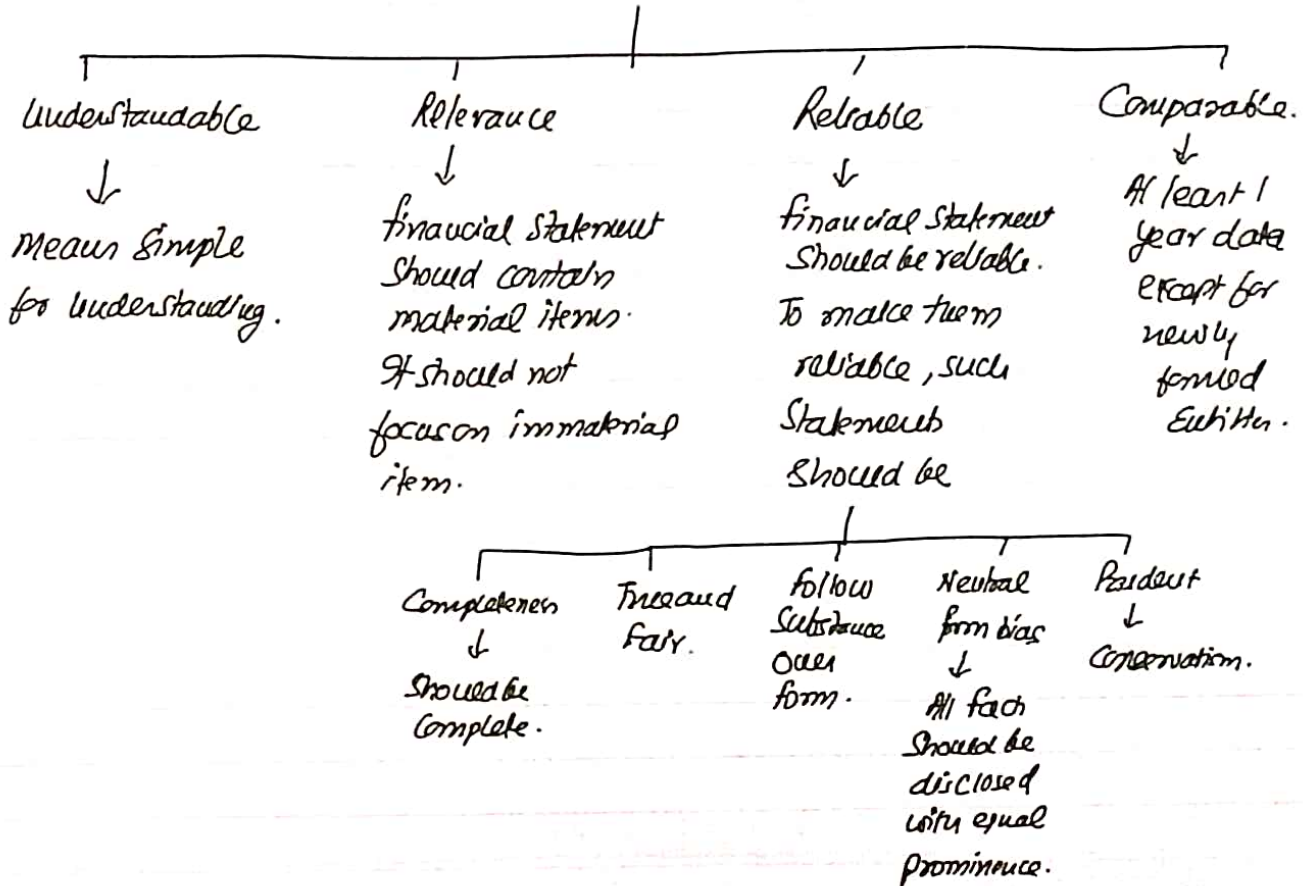 Understandable
Means Simple
for Understanding.
Relevance
financial Statement
Should contain
material items.
It should not
focus on immaterial
item.
Reliable
financial Statement
Should be reliable.
To make them
reliable, such
Statements
Should be
Comparable.
At least 1
year data
except for
newly
formed
Entities.
Completeness
Should be
Complete.
True and
fair.
follow
Substance
Over
form.
Neutral
from bias
All facts
Should be
disclosed
with equal
prominence.
Prudent
Conservatism.